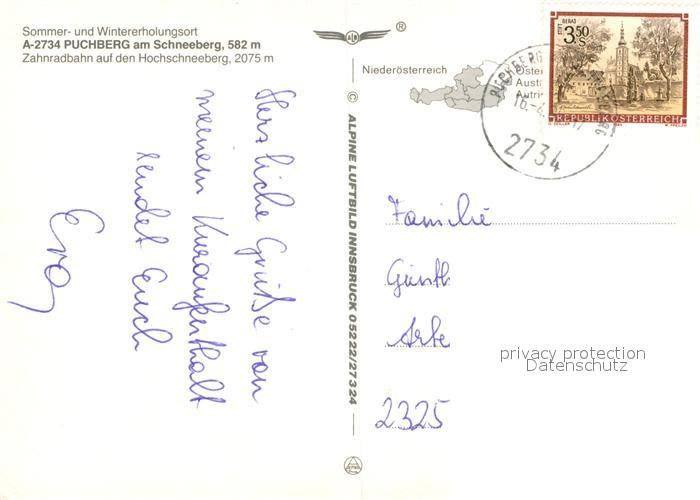 Sommer- und Wintererholungsort
A-2734 PUCHBERG am Schneeberg, 582 m
Zahnradbahn auf den Hochschneeberg, 2075 m
®
Niederösterreich
Öster
Aust
Autri
PUCHBERG
16.-4.
17
2734
STIFT GERAS
3.50
S
REPUBLIK ÖSTERREICH
© ALPINE LUFTBILD INNSBRUCK 05222/27324
Herzliche Grüße von
meinem Kuraufenthalt
sendet Euch
Eva
Familie
Günth
Arbe
2325
privacy protection
Datenschutz